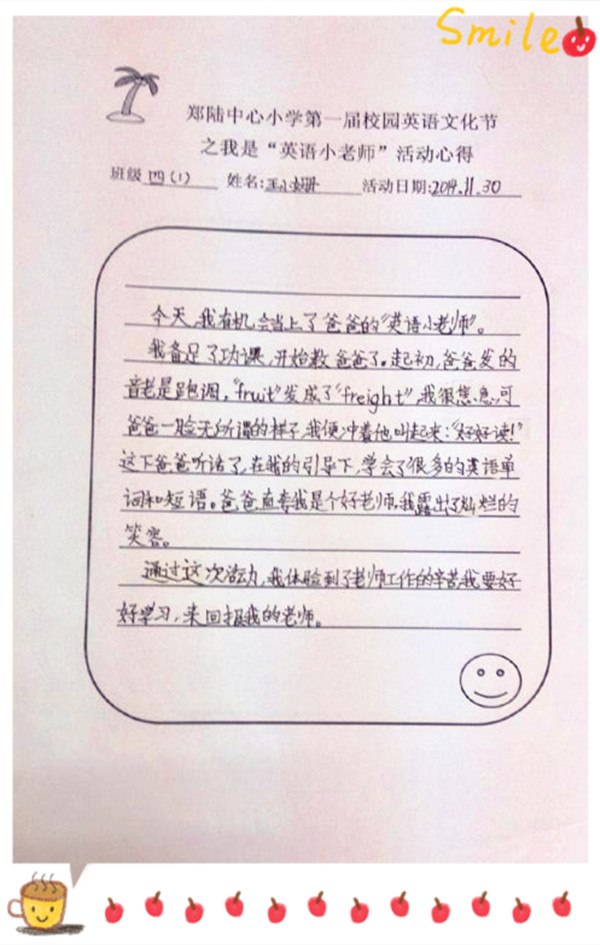 Smile
郑陆中心小学第一届校园英语文化节
之我是“英语小老师”活动心得
班级 四(1) 姓名: 王小妍 活动日期: 2014.11.30
今天,我有机会当上了爸爸的“英语小老师”。
我备足了功课,开始教爸爸了。起初,爸爸发的
音老是跑调,“fruit”发成了“freight”,我很焦急,可
爸爸一脸无所谓的样子,我便冲着他叫起来:“好好读!”
这下爸爸听话了,在我的引导下,学会了很多的英语单
词和短语。爸爸直夸我是个好老师,我露出了灿烂的
笑容。
通过这次活动,我体验到了老师工作的辛苦,我要好
好学习,来回报我的老师。